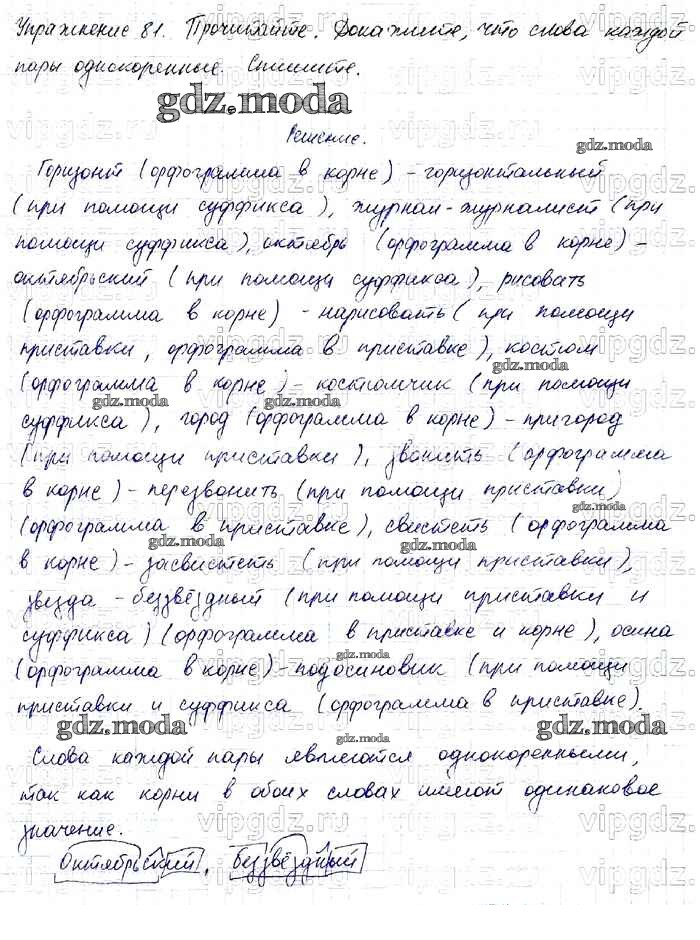 Упражнение 81. Прочитайте. Докажите, что слова каждой
пары однокоренные. Спишите.
gdz.moda
Решение.
gdz.moda
Горизонт (орфограмма в корне) - горизонтальный
(при помощи суффикса), журнал-журналист (при
помощи суффикса), октябрь (орфограмма в корне) -
октябрьский (при помощи суффикса), рисовать
(орфограмма в корне) - нарисовать (при помощи
приставки, орфограмма в приставке), костюм
(орфограмма в корне) - костюмчик (при помощи
gdz.moda gdz.moda
суффикса), город (орфограмма в корне) - пригород
(при помощи приставки), звонить (орфограмма
в корне) - перезвонить (при помощи приставки)
(орфограмма в приставке), свистеть (орфограмма
gdz.moda gdz.moda
в корне) - засвистеть (при помощи приставки),
звезда - беззвёздный (при помощи приставки и
суффикса) (орфограмма в приставке и корне), осина
gdz.moda
(орфограмма в корне) - подосиновик (при помощи
приставки и суффикса (орфограмма в приставке).
gdz.moda gdz.moda gdz.moda
Слова каждой пары являются однокоренными,
так как корни в обоих словах имеют одинаковое
значение.
Октябрьский, беззвёздный
vipgdz.ru